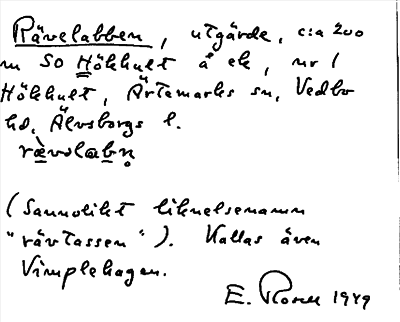 Rävelabben, utgärde, c:a 200
m SO Hökhult å ek, nr 1
Hökhult, Ärtemarks sn, Vedbo
hd, Älvsborgs l.
rævəlabn̥
(Sannolikt liknelsenamn
"rävtassen"). Kallas även
Vimplehagen.
E. Rosell 1949